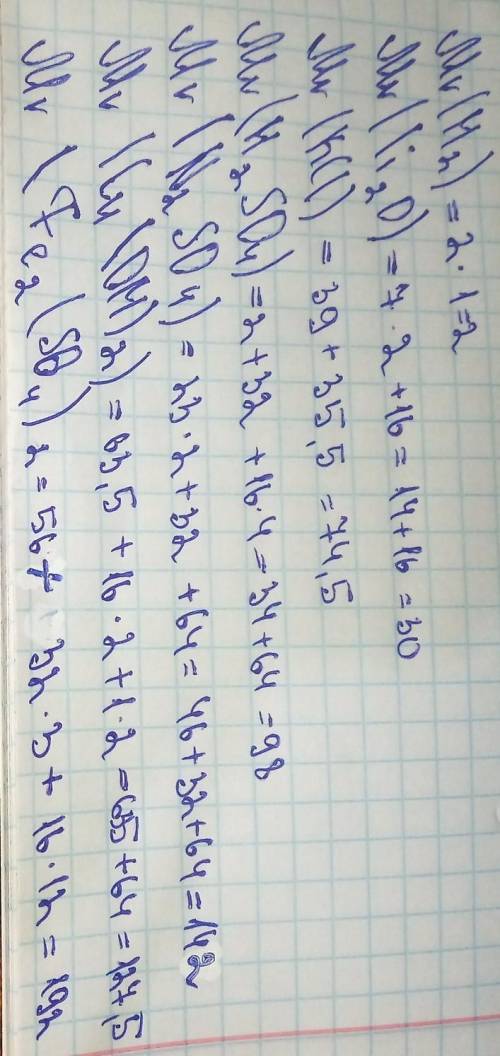 Mr (H2) = 2·1=2
Mr (Li2O) = 7·2+16=14+16=30
Mr (KCl) = 39+35,5=74,5
Mr (H2SO4) = 2+32+16·4=34+64=98
Mr (Na2SO4) = 23·2+32+64=46+32+64=142
Mr (Cu(OH)2) = 63,5+16·2+1·2=655+64=127,5
Mr (Fe2(SO4)2=56+32·3+16·12=192